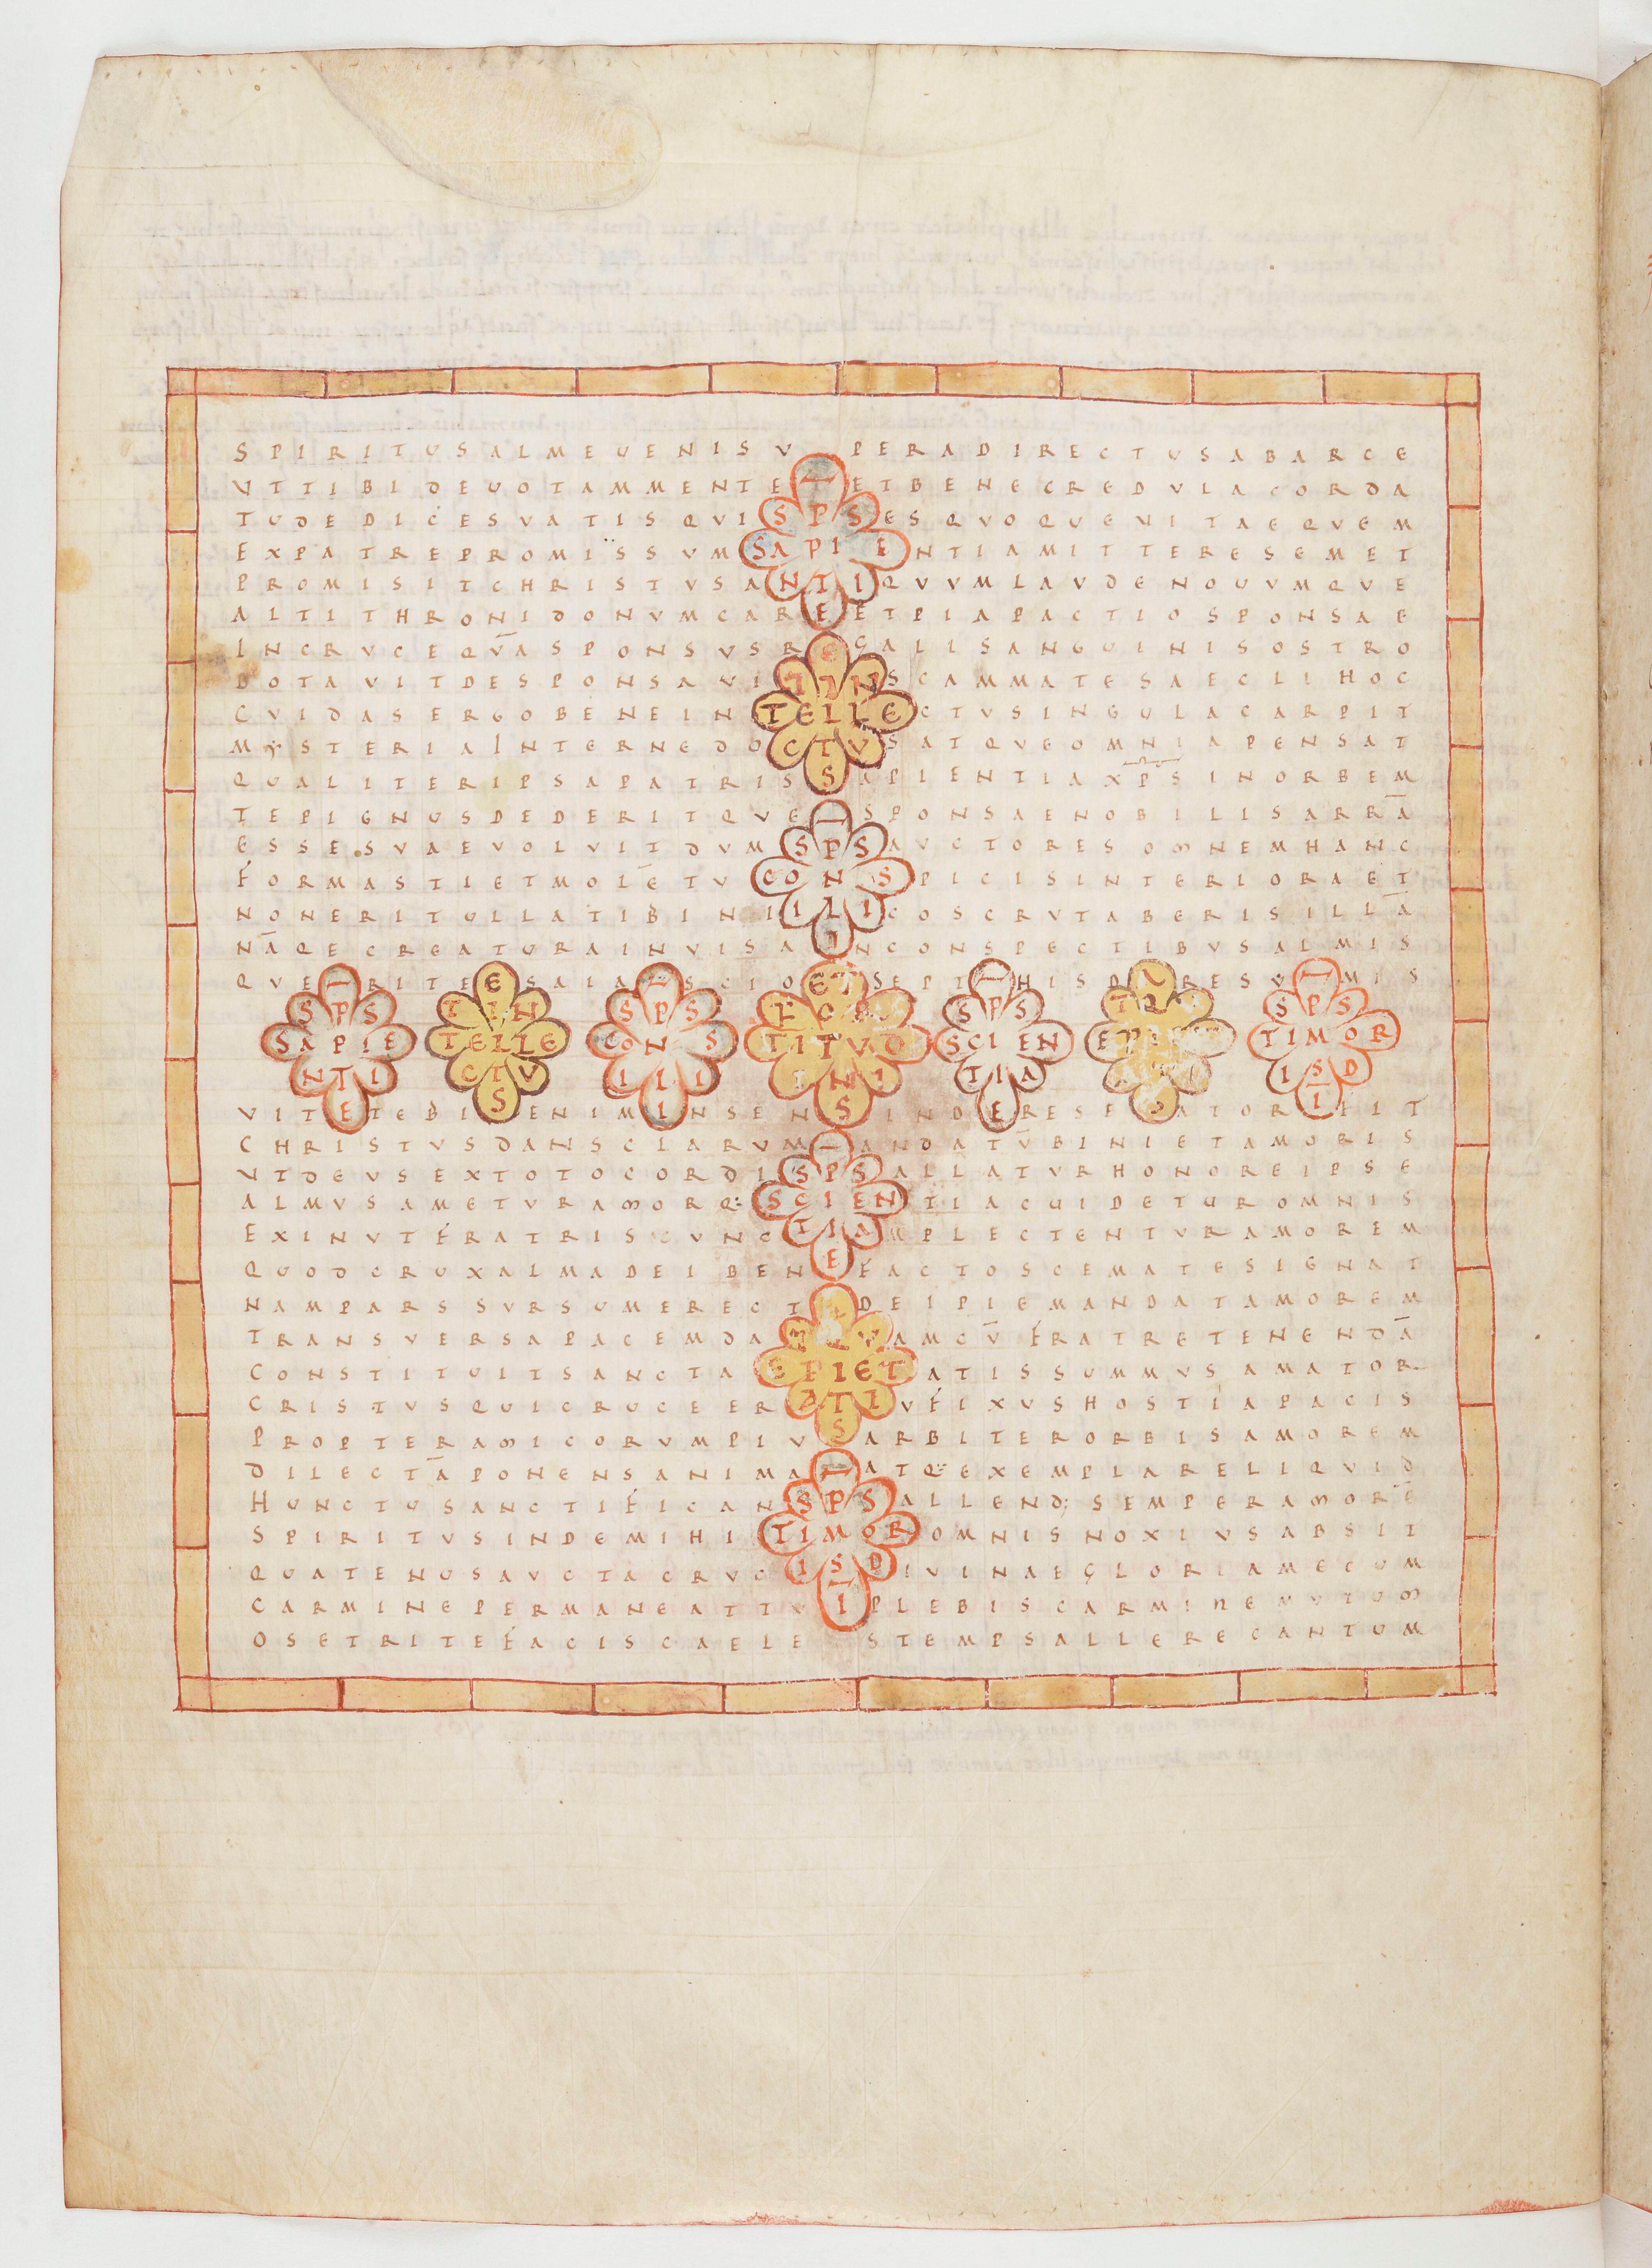 SPIRITUSALMEUENISVPERADIRECTUSABARCE
VTTIBIDEUOTAMMENTEETBENECREDVLACORDA
TUDEDICESVATISQVISPSESQVOQUEVITAEQVEM
EXPATREPROMISSVMSAPIENTIAMITTERESEMET
PROMISITCHRISTVSANTIQVVMLAVDENOUVMQVE
ALTITHRONIDONVMCAREETPIAPACTIOSPONSAE
INCRVCEQVĀSPONSVSREGALISANGUINISOSTRO
DOTAVITDESPONSAVITINSCAMMATESAECLIHOC
CVIDASERGOBENEINTELLECTVSINGULACARPIT
MYSTERIAINTERNEDOCTVSATQVEOMNIAPENSAT
QUALITERIPSAPATRISSAPIENTIAXP̄SINORBEM
TEPIGNUSDEDERITQVESPONSAENOBILISARRĀ
ESSESVAEVOLVITDVMSPSAVCTORESOMNEMHANC
FORMASTIETMOLĒTVCONSPICISINTERIORAET
NONERITULLATIBINIILICOSCRVTABERISILLĀ
NĀQECREATURAINVISAINCONSPECTIBVSALMIS
QVERITEESAIASCIOETSEPTHISDARESVMIS
SPSTINSPSFORSPSTQVSPS
SAPIETELLECONSTITVDSCIENEPIETTIMOR
NTICTVILIINITIAATIISD
VITETEBISENIMINSENSINDERESESATORIFIT
CHRISTVSDANSCLARVMANDATŪBINIETAMORIS
VTDEVSEXTOTOCORDISPSALLATVRHONOREIPSE
ALMVSAMETVRAMORQ:SCIENTIACUIDETUROMNIS
EXINVTFRATRISCVNCTIAMPLECTENTVRAMOREM
QUODCRUXALMADEIBENEFACTOSCEMATESIGNAT
NAMPARSSVRSUMERECTADEIPIEMANDATAMOREM
TRANSVERSAPACEMDATQVAMCŪFRATRETENENDĀ
CONSTITUITSANCTAEPIETATISSUMMVSAMATOR
CRISTVSQUICRUCEERATIVFIXUSHOSTIAPACIS
PROPTERAMICORVMPIVSARBITERORBISAMOREM
DILECTĀPONENSANIMAATQ:EXEMPLARELIQVID
HUNCTUSANCTIFICANSPSALLEND;SEMPERAMORĒ
SPIRITVSINDEMIHITIMOROMNISNOXIVSABSIT
QUATENUSAVCTACRVCISDIVINAEGLORIAMECUM
CARMINEPERMANEATTVIPLEBISCARMINEMVTUM
OSETRITEFACISCAELESTEMPSALLERECANTUM